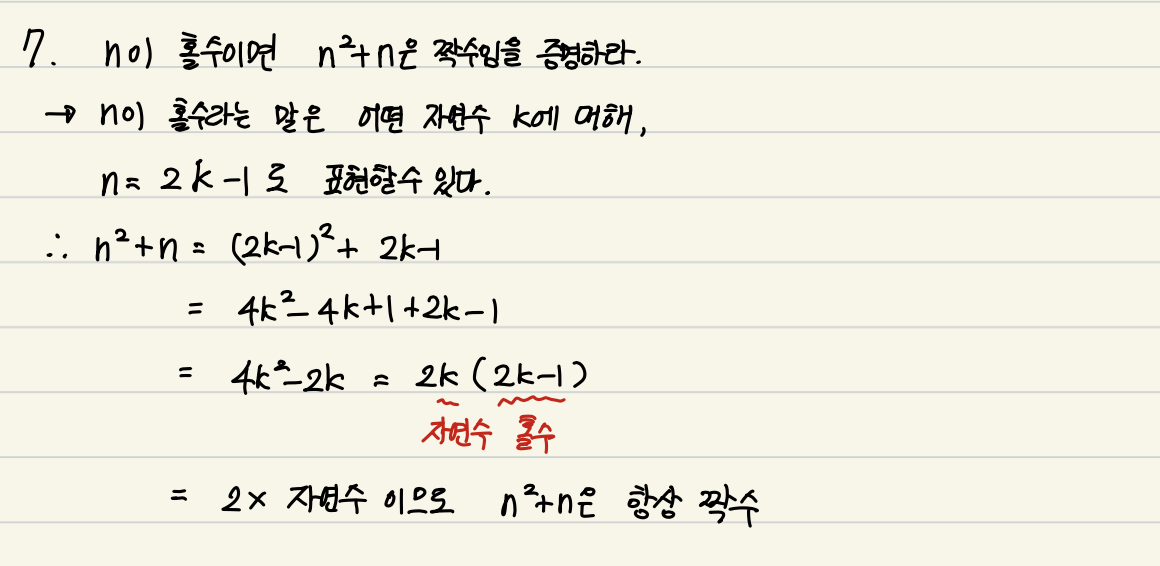 7. n이 홀수이면 n²+n은 짝수임을 증명하라.
→ n이 홀수라는 말은 어떤 자연수 k에 대해,
n= 2k-1로 표현할수 있다.
∴ n²+n = (2k-1)²+ 2k-1
= 4k²-4k+1+2k-1
= 4k²-2k = 2k(2k-1)
자연수 홀수
= 2× 자연수 이므로 n²+n은 항상 짝수